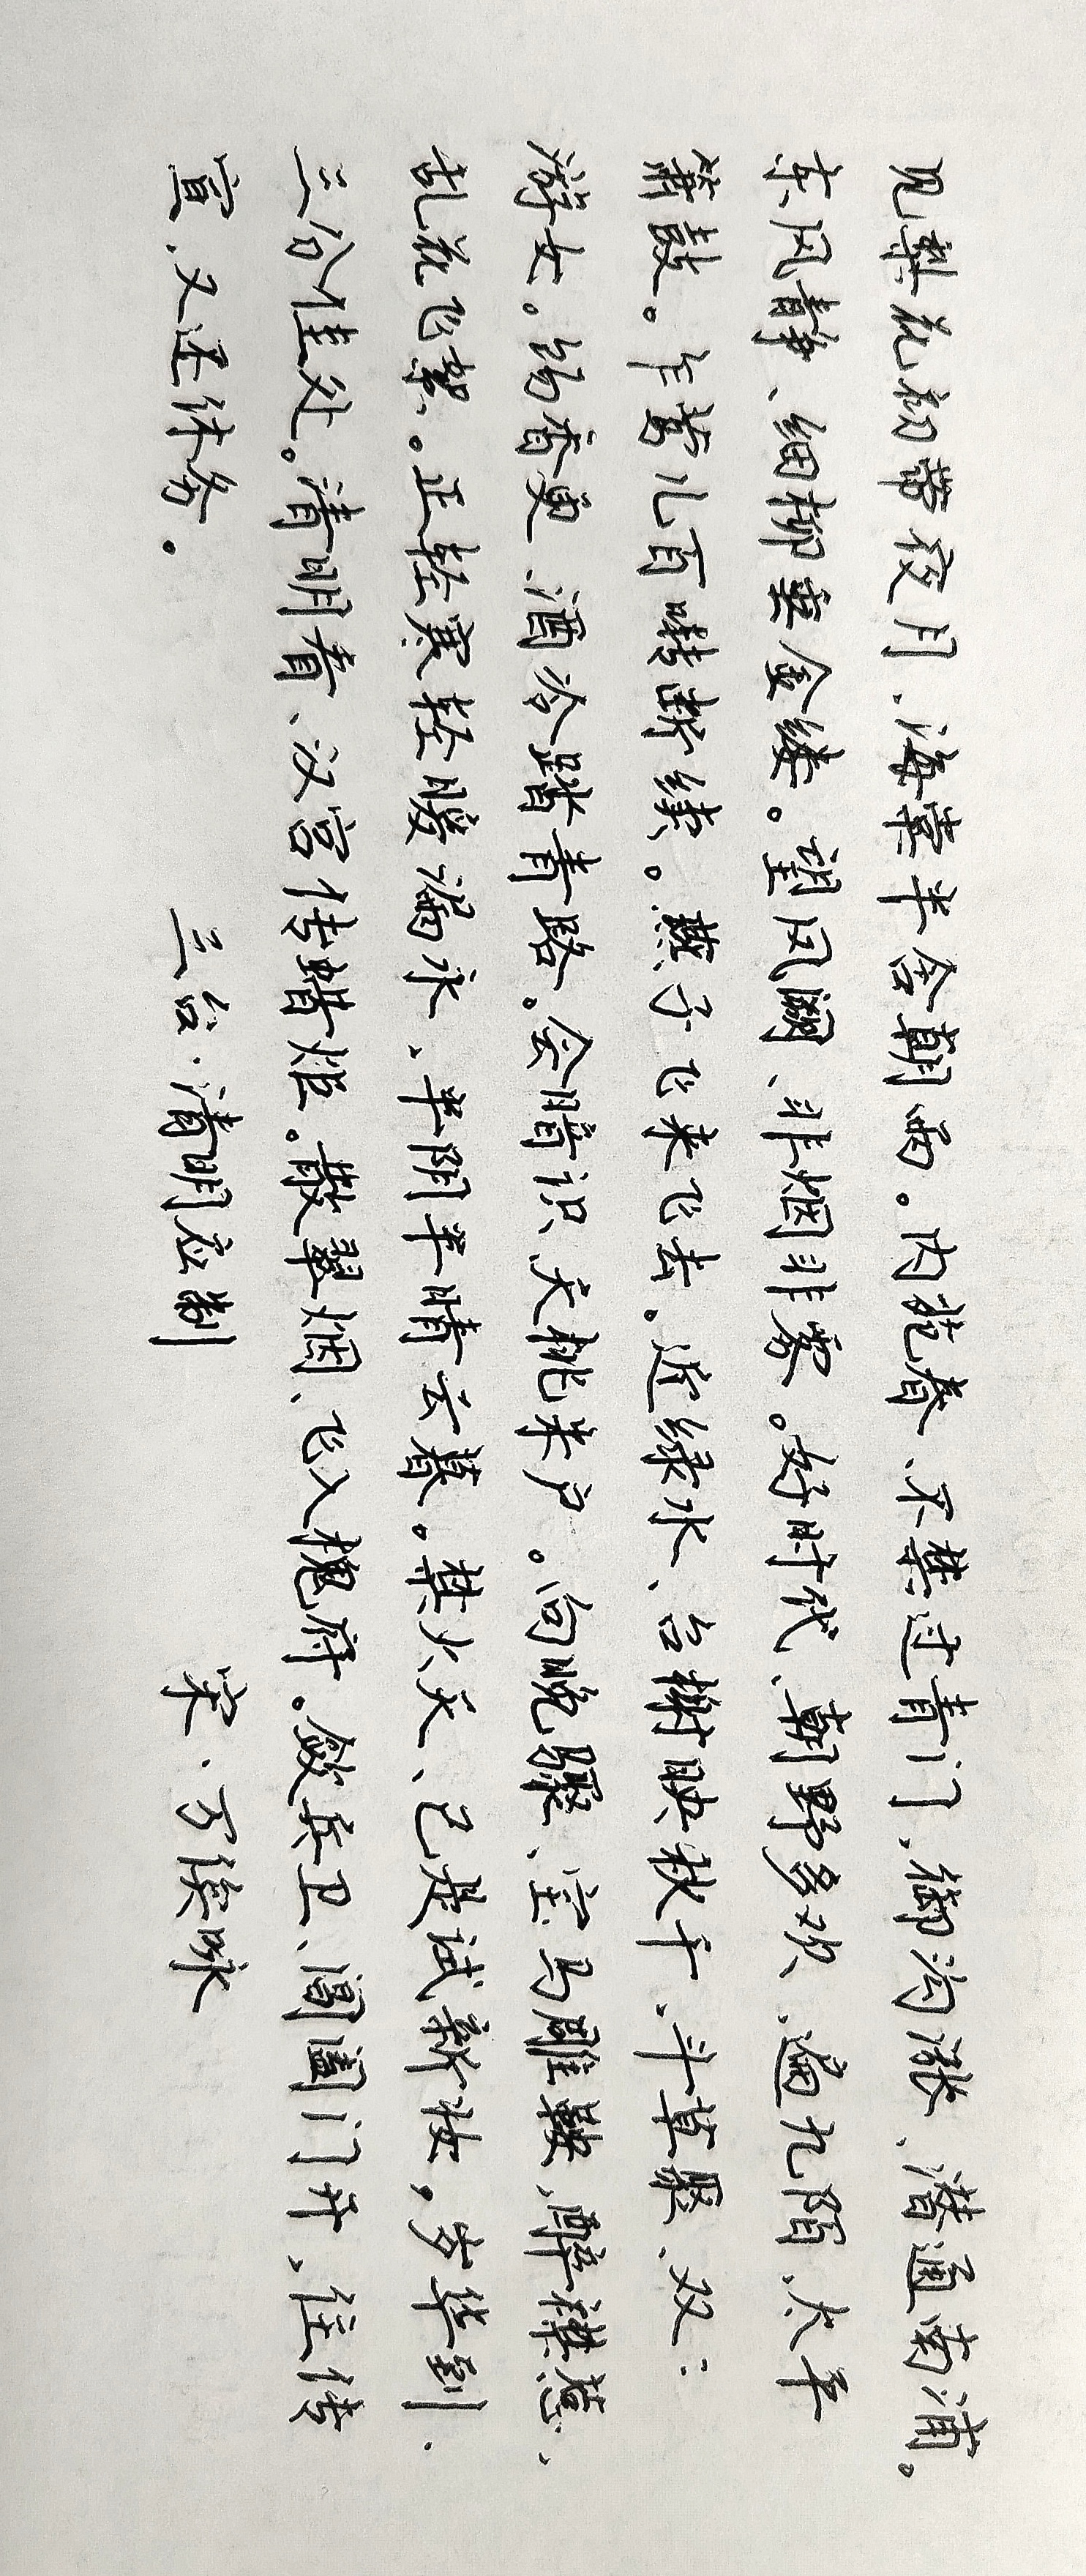 见梨花初带夜月、海棠半含朝雨。内苑春、不禁过青门、御沟涨、潜通南浦。
东风静、细柳垂金缕。望凤阙、非烟非雾。好时代、朝野多欢、遍九陌、太平
箫鼓。乍莺儿百啭断续。燕子飞来飞去。近绿水、台榭映秋千、斗草聚、双:
游女。饧香更、酒冷踏青路。会暗识、夭桃朱户。向晚骤、宝马雕鞍、醉襟惹、
乱花飞絮。正轻寒轻暖漏永、半阴半晴云暮。禁火天、已是试新妆,岁华到、
三分佳处。清明看、汉宫传蜡炬。散翠烟、飞入槐府。敛兵卫、阊阖门开、住传
宣、又还休务。 三台·清明应制 宋·万俟咏